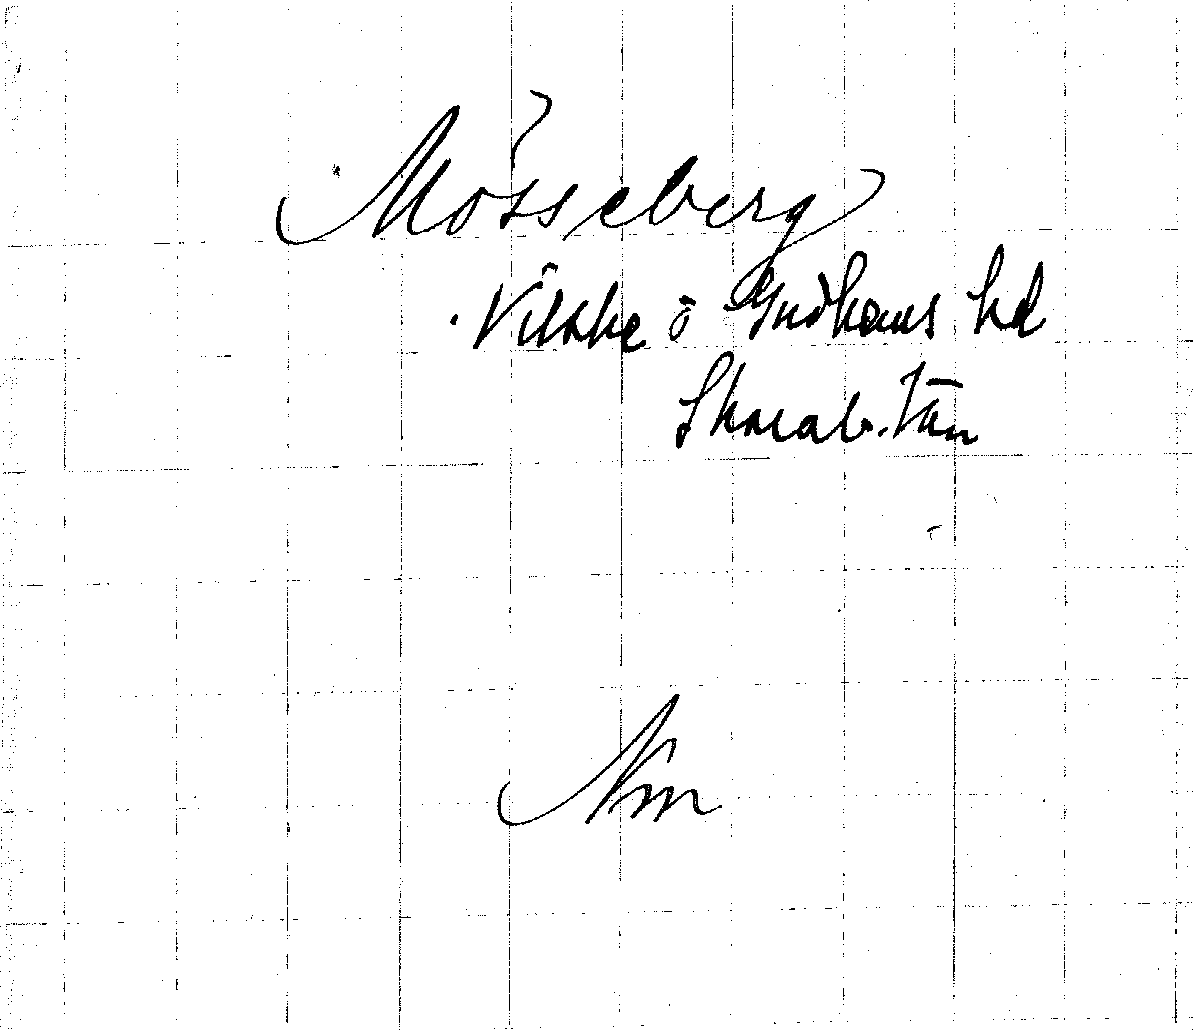 Mösseberg
Vilske o Gudhems hd
Skarab. län
Nm